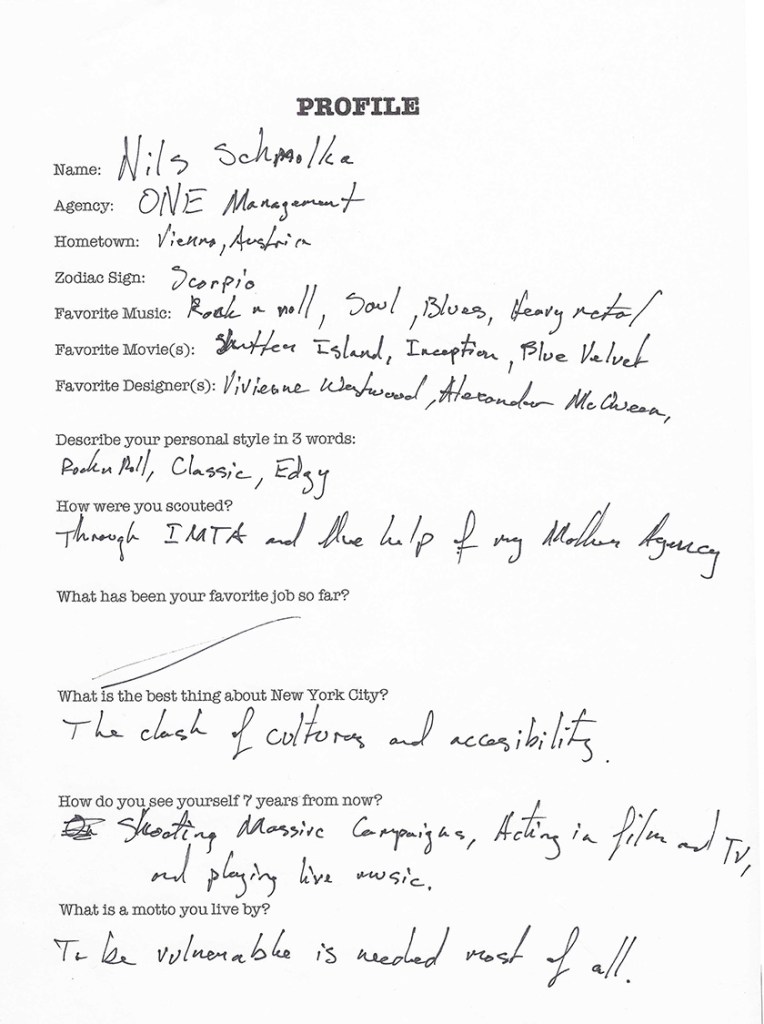 PROFILE
Name: Nils Schmolka
Agency: ONE Management
Hometown: Vienna, Austria
Zodiac Sign: Scorpio
Favorite Music: Rock n roll, Soul, Blues, Heavy metal
Favorite Movie(s): Shutter Island, Inception, Blue Velvet
Favorite Designer(s): Vivienne Westwood, Alexander McQueen,
Describe your personal style in 3 words:
Rock n Roll, Classic, Edgy
How were you scouted?
Through IMTA and the help of my Mother Agency
What has been your favorite job so far?
What is the best thing about New York City?
The clash of cultures and accesibility.
How do you see yourself 7 years from now?
Shooting Massive Campaigns, Acting in film and TV,
and playing live music.
What is a motto you live by?
To be vulnerable is needed most of all.